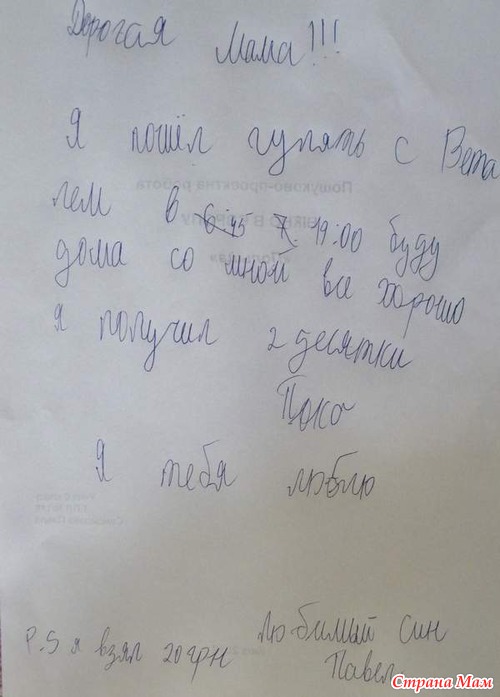 Дорогая Мама!!!
Я пошёл гулять с Вета
лем в 6:45 7. 19:00 буду
дома со мной все хорошо
я получил 2 десятки
Пока
Я тебя люблю
Любимый син
P.S я взял 20 грн
Павел
Пошуково-проектна робота
Страна Мам